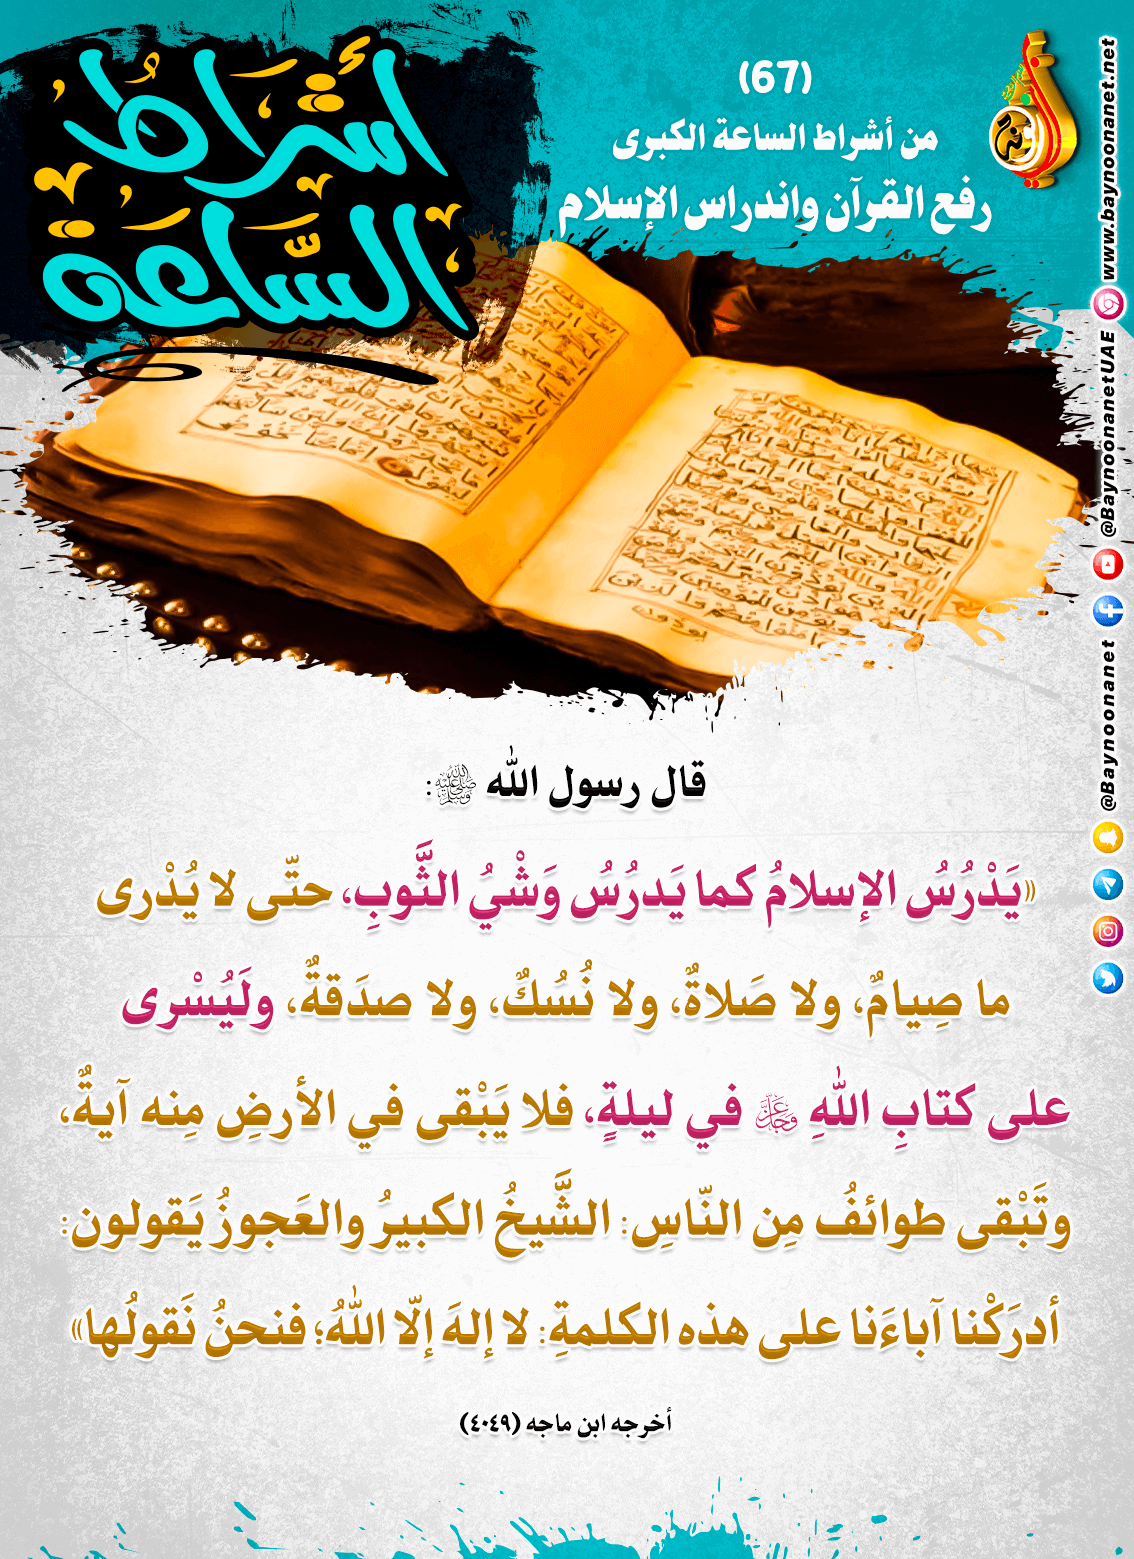 أَشْرَاطُ
السَّاعَة
(67)
من أشراط الساعة الكبرى
رفع القرآن واندراس الإسلام
www.baynoonanet.net
@BaynoonanetUAE
@Baynoonanet
قال رسول الله ﷺ:
«يَدْرُسُ الإسلامُ كما يَدرُسُ وَشْيُ الثَّوبِ، حتّى لا يُدْرى
ما صِيامٌ، ولا صَلاةٌ، ولا نُسُكٌ، ولا صدَقةٌ، ولَيُسْرى
على كتابِ اللهِ عَزَّ وَجَلَّ في ليلةٍ، فلا يَبْقى في الأرضِ مِنه آيةٌ،
وتَبْقى طوائفُ مِن النّاسِ: الشَّيخُ الكبيرُ والعَجوزُ يَقولون:
أدرَكْنا آباءَنا على هذه الكلمةِ: لا إلهَ إلّا اللهُ؛ فنحنُ نَقولُها»
أخرجه ابن ماجه (٤٠٤٩)